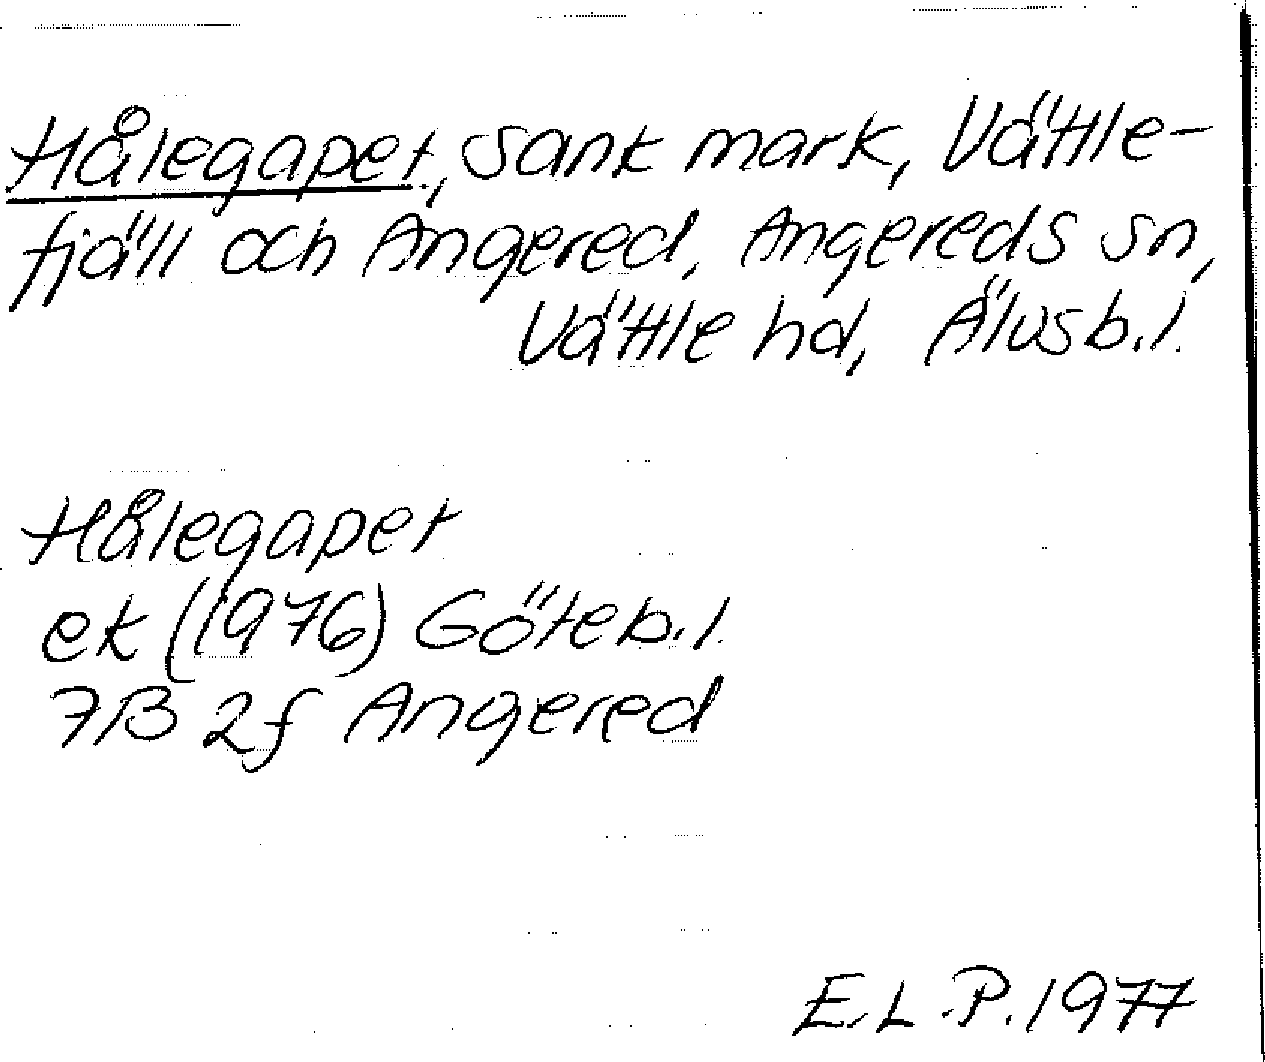 Hålegapet, sank mark, Vättle-
fjäll och Angered, Angereds sn,
Vättle hd, Älvsb.l.
Hålegapet
ek (1976) Göteb.l.
7B 2f Angered
E.L.P. 1977